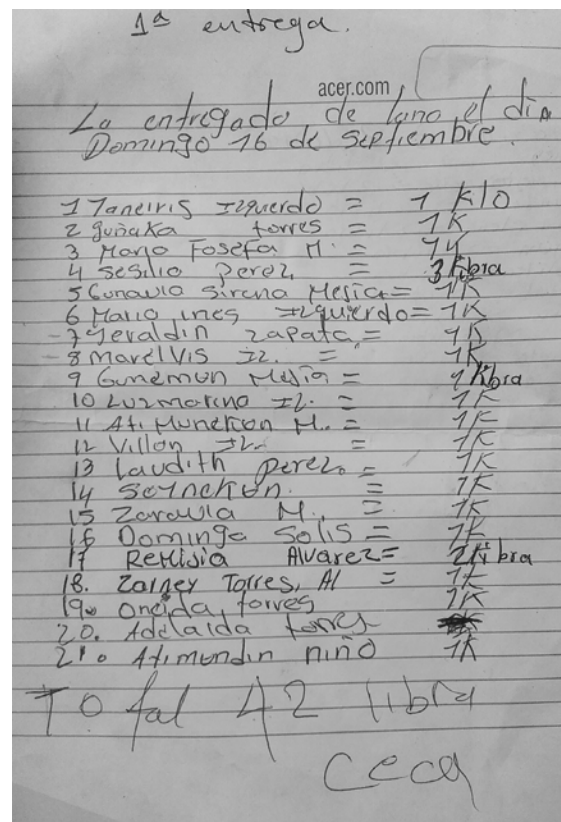 1ª entrega.
acer.com
La entregado de lano el día
Domingo 16 de Septiembre.
1 Yaneiris Izquierdo = 1 Kilo
2 guñaka torres = 1K
3 Mario Fosefa M. = 1K
4 Sesilio Perez, = 3 libra
5 Gunawia Sirena Mesia = 1K
6 Mario ines Izquierdo = 1K
7 Yeraldin zapata = 1K
8 Marelvis Iz. = 1K
9 Gunemun Mesia = 1 libra
10 Luzmarina Iz. = 1K
11 Ati Munekun M.. = 1K
12 Villon Iz. = 1K
13 Laudith perez. = 1K
14 Seynekun. = 1K
15 Zarawia M., = 1K
16 Domingo Solis = 1K
17 Remisia Alvarez =
18. Zainey Torres, Al = 1K
19. Oneida, torres 1K
20. Adelaida torres
21. Atimundin niño 1K
Total 42 libra